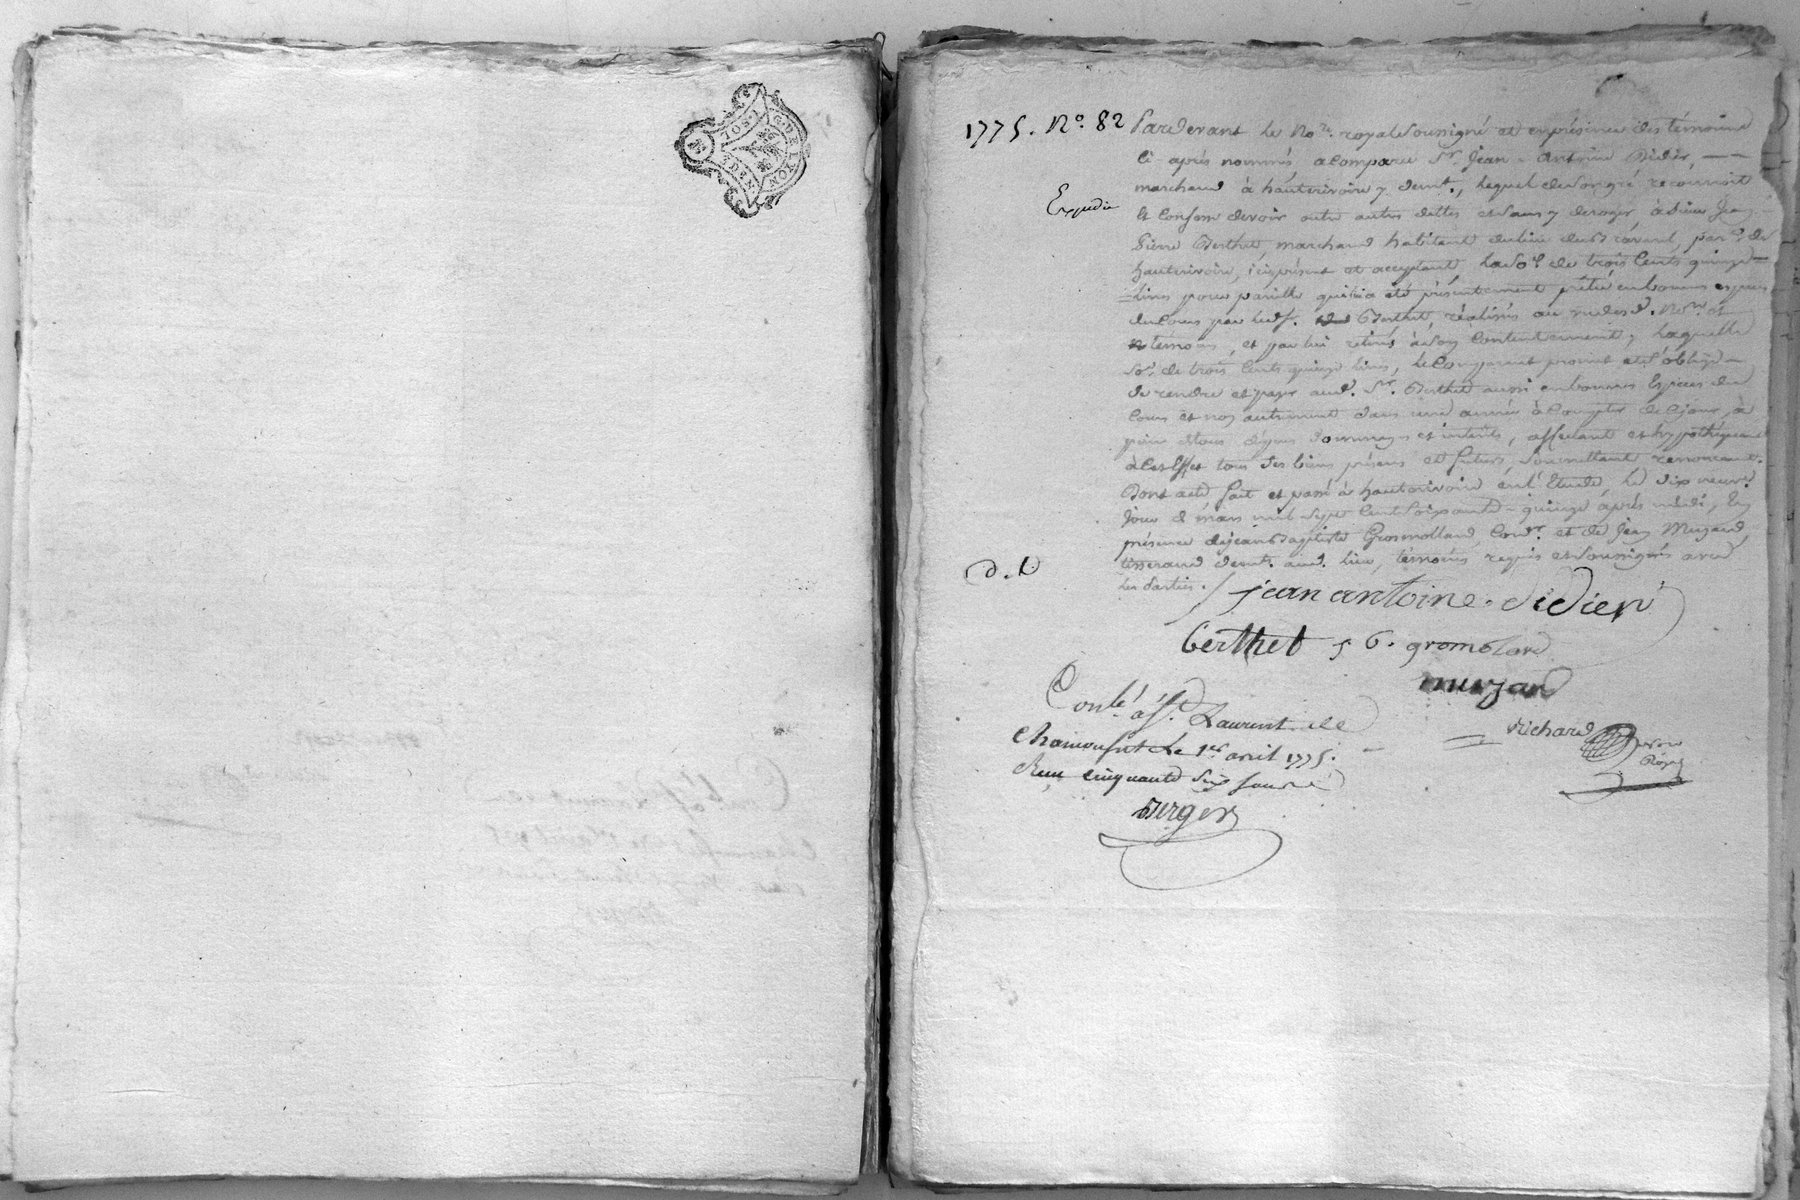 GEN. DE LYON
1775. No. 82
Expedié
Pardevant le No.re royal soussigné et en présence des témoins
ci-après nommés, a comparu Sr. Jean-Antoine Didier,
marchand à hauterivoire y demt., lequel de son gré reconnoit
et confesse devoir outre autres dettes et sans y deroger à sieur Jean
Pierre Berthet, marchand habitant du lieu de , par.se de
hauterivoire, ici présent et acceptant, la so.e de trois cents quinze
livres pour pareille qui lui a été présentement prêtée en bonnes especes
du cours par led. Sr. Berthet, réalisés au vu desd. No.re et
témoins, et par lui retirés à son contentement, laquelle
so.e de trois cents quinze livres, le comparant promet et s'oblige
de rendre et payer aud. Sr. Berthet aussi en bonnes especes du
cours et non autrement dans une année à compter de ce jour, à
peine de tous dépens dommages et intérêts, affectant et hypothéquant
à cet effet tous ses biens présens et futurs, soumettant renonceant.
Dont acte fait et passé à hauterivoire en l'Etude, le dix neuve
jour de mars mil sept cent soixante-quinze après midi, En
présence de jean Baptiste Grosmolland, Cor.r et de Jean Muzard,
tisserand demt. aud. lieu, témoins requis et soussignés avec
les parties.
d. t
jean antoine didier
Berthet j b. gromolard
muzard
Richard
Nore
Royal
Conlé. à St. Laurent de
Chamousset le 1er avril 1775.
Reçu cinquante six sous
Berger